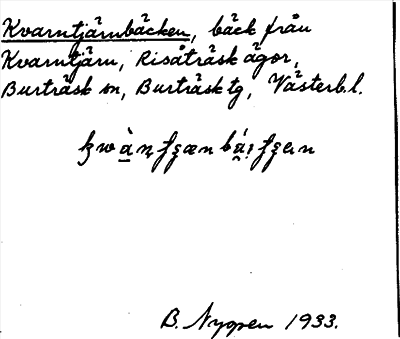 Kvarntjärnbäcken, bäck från
Kvarntjärn, Risåträsk ägor,
Burträsk sn, Burträsk tg, Västerb.l.
B. Nygren 1933.